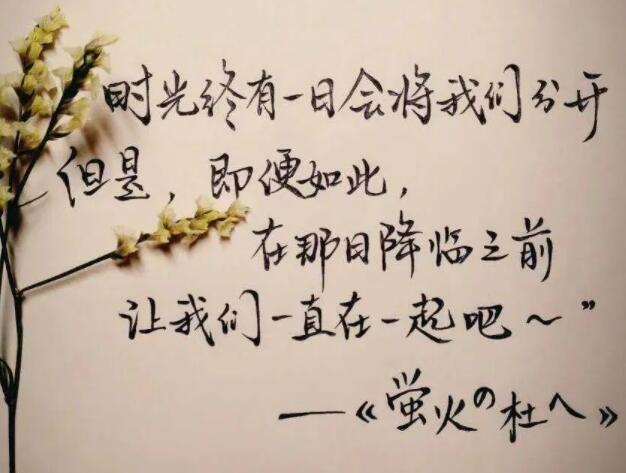 时光终有一日会将我们分开
但是，即便如此，
在那日降临之前
让我们一直在一起吧～”
—《萤火の杜へ》